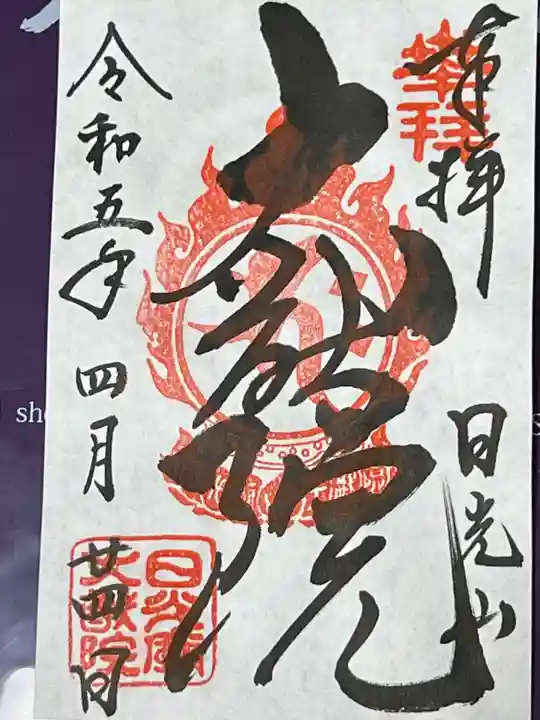 奉拝
日光山
大猷院
令和五年四月廿四日
奉拝
日光山
大猷院
sho
s